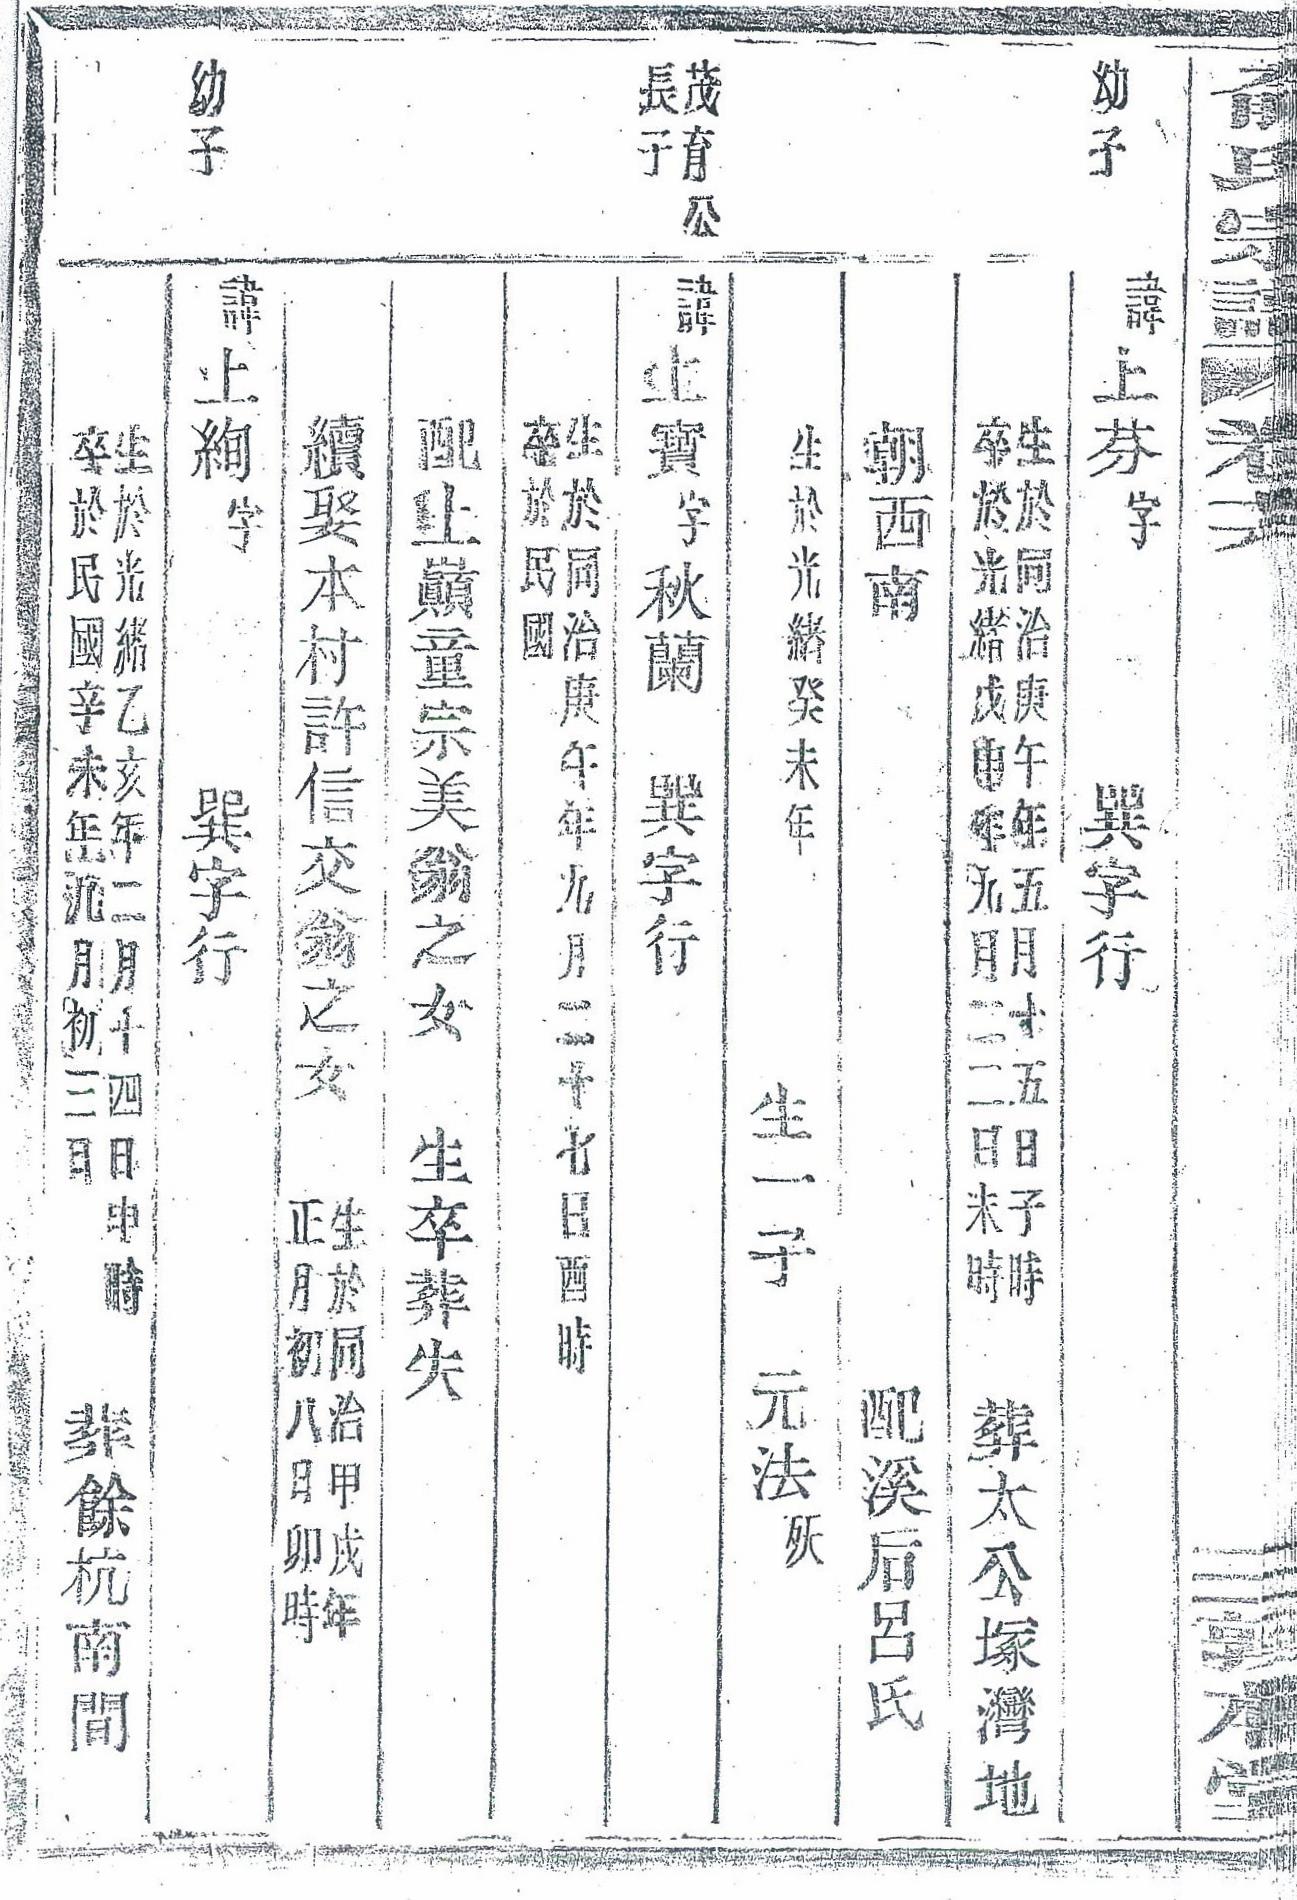 氏宗譜 卷六
幼子
諱上芬字 巽字行
生於同治庚午年五月十五日子時
卒於光緒戊申年九月二二日未時
葬太公塚灣地
朝西南 配溪后呂氏
生於光緒癸未年 生一子 元法 殀
茂育公
長子
諱上寶字秋蘭 巽字行
生於同治庚午年九月二十七日酉時
卒於民國
配上巔童宗美翁之女 生卒葬失
續娶本村許信交翁之女
生於同治甲戌年
正月初八日卯時
幼子
諱上絢字 巽字行
生於光緒乙亥年二月十四日申時
卒於民國辛未年九月初三日
葬餘杭南間